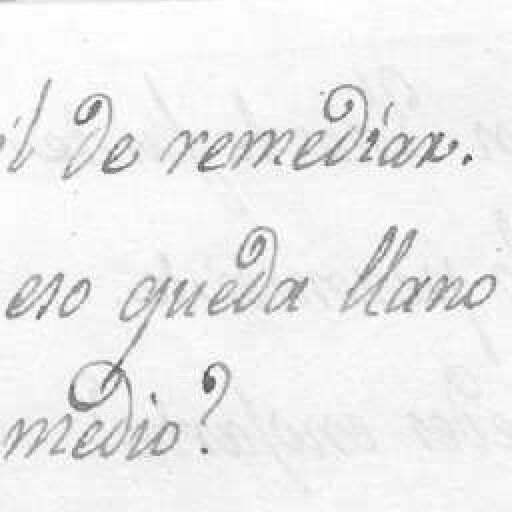 il de remediar.
eso queda llano
medio?